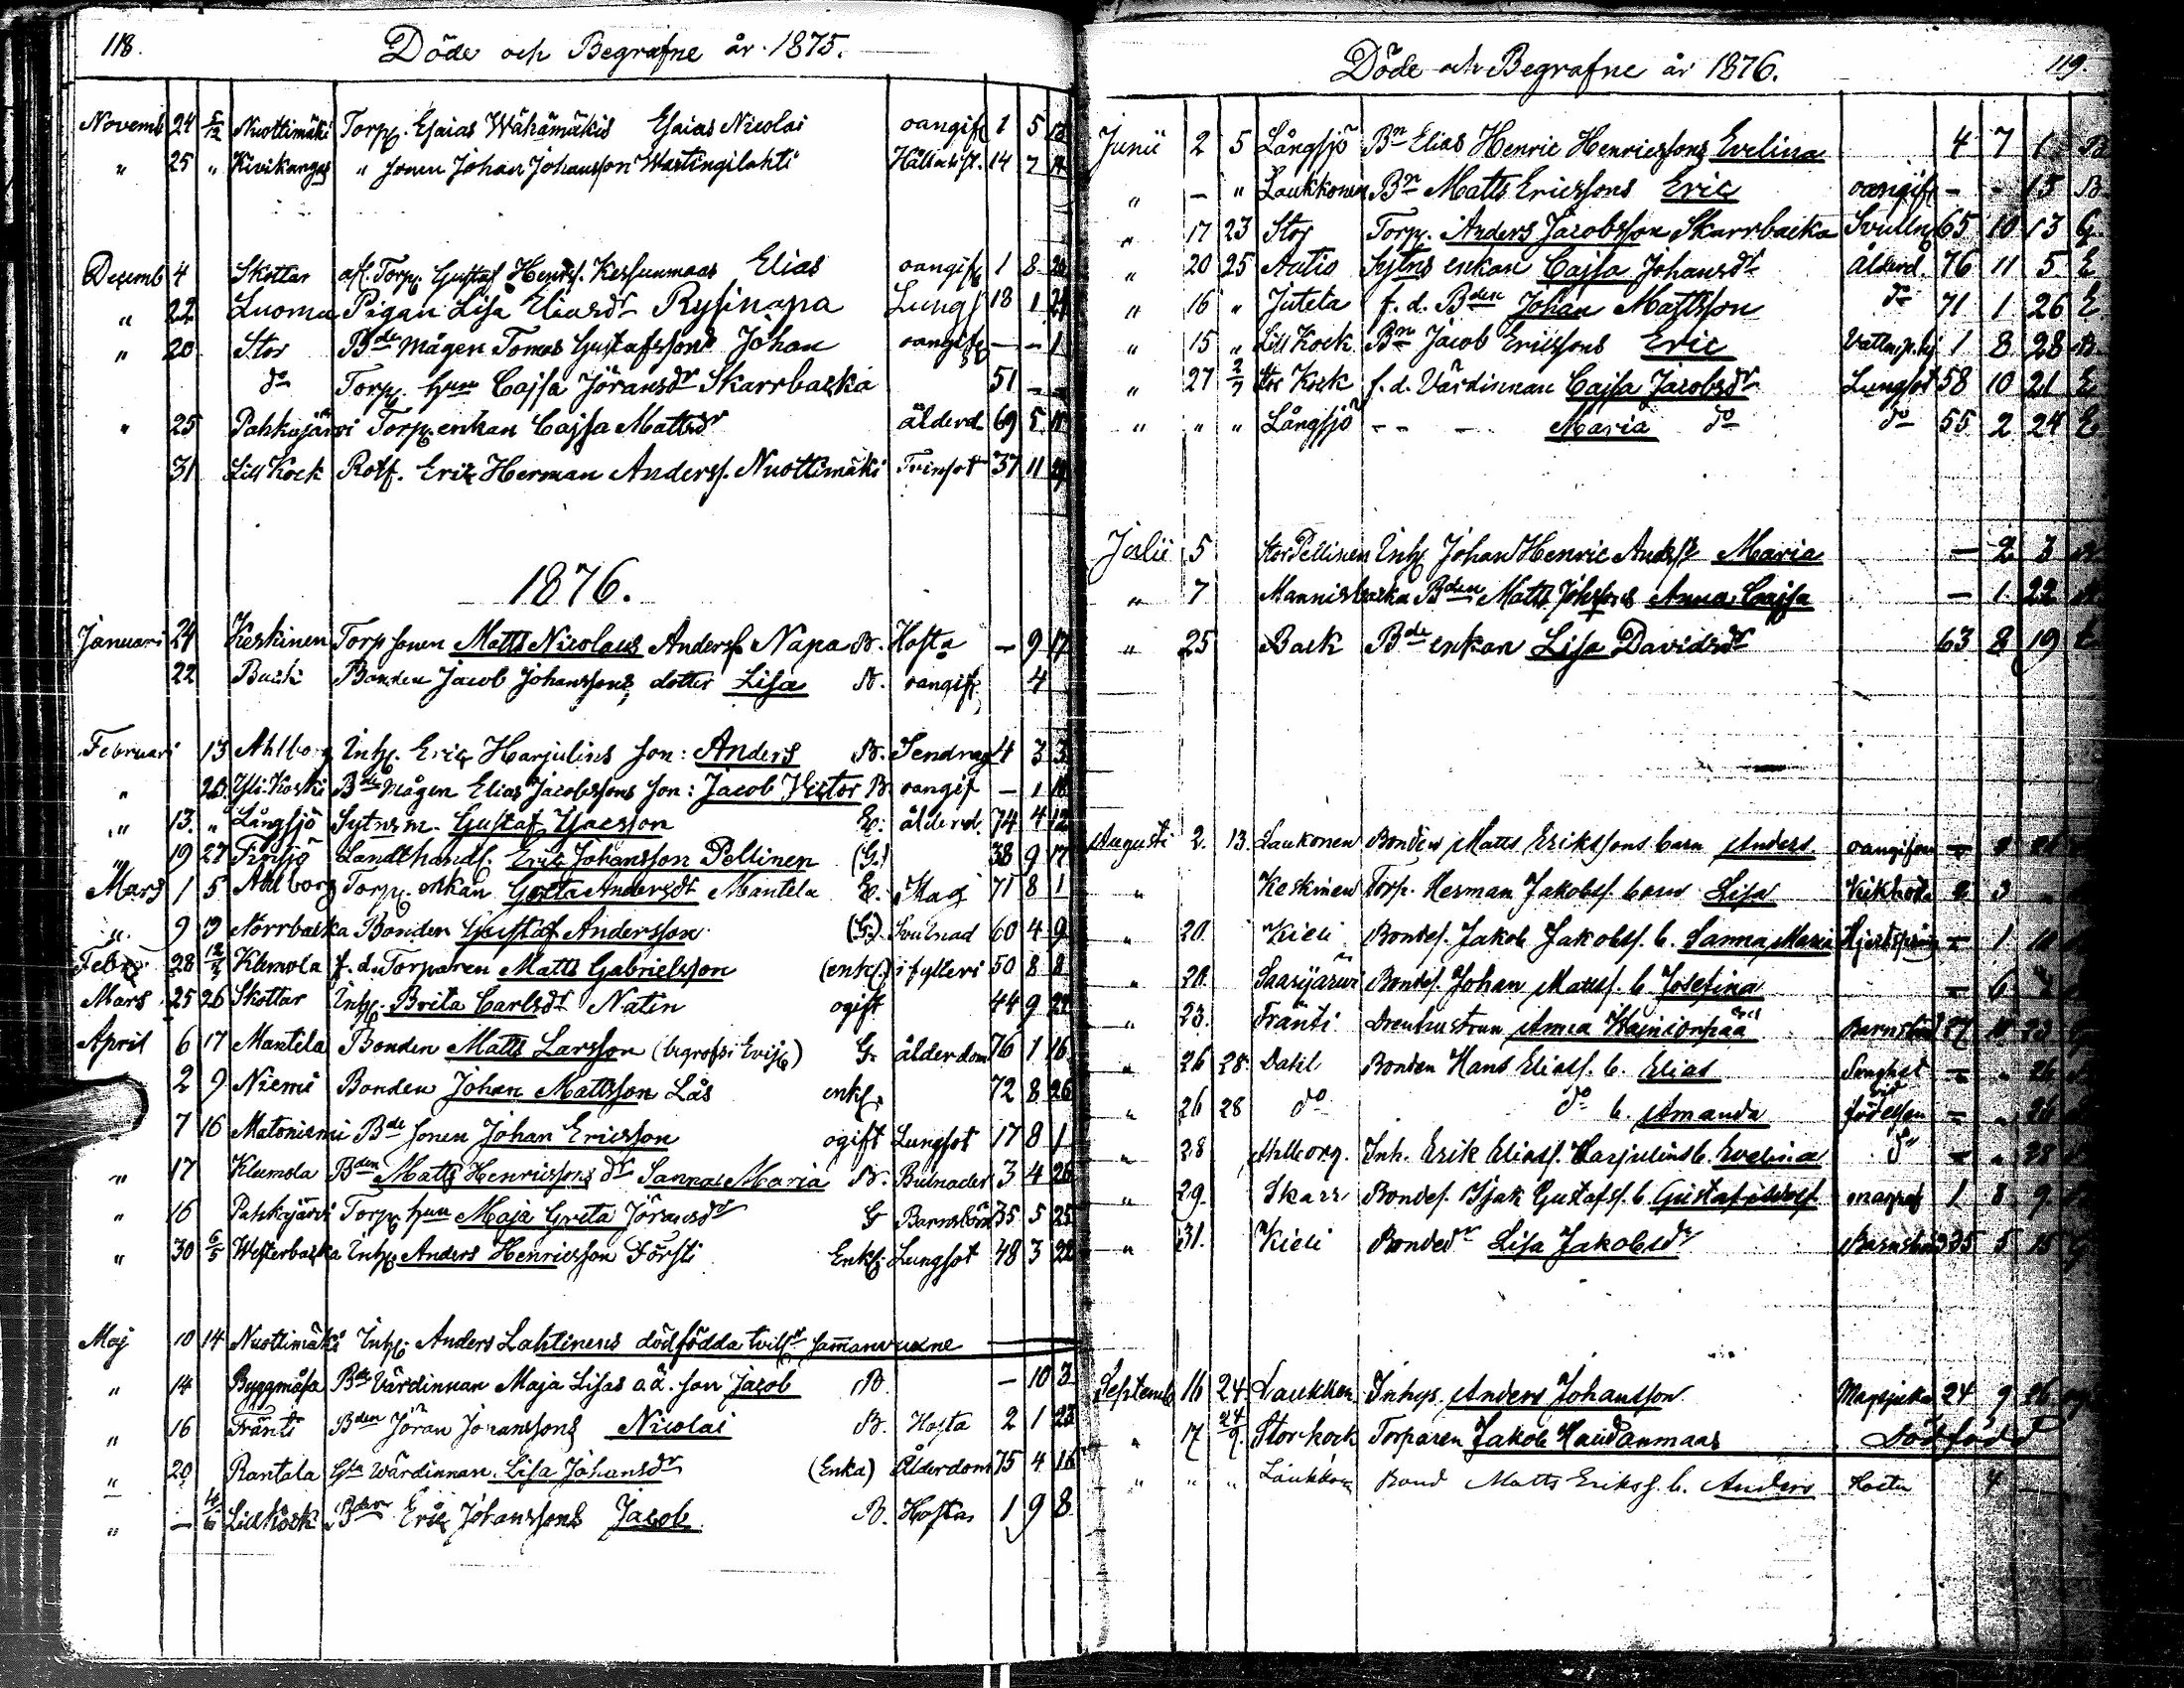 118. Döde och Begrafne år 1875.
Novemb 24 5/12 Nuottimäki Torp. Esaias Wähämäkis Esaias Nicolai oangif. 1 5 12
" 25 " Kivikangas " sonen Johan Johansson Wartingilahti Hållsiust. 14 7
Decemb 4 Skottar afl. Torp. Gustaf Henrs. Kessunmaas Elias oangif. 1 8 20
" 22 Luoma Pigan Lisa Eliasdr Rysinapa Lungs 18 1 24
" 20 Stor Bde mågen Tomas Gustafssons Johan oangif. — - 1
do Torp. hun Cajsa Jöransdr Skarrbacka 51 - -
" 25 Pahkajärvi Torp. enkan Cajsa Mattsdr ålderd. 69 5 18
31 Lill Kock Rotf. Eric Herman Anderss. Nuottimäki Tvinsot 37 11
1876.
Januari 24 Keskinen Torp sonen Matts Nicolaus Anderss. Napa B. Hosta — 9 17
22 Back Bonden Jacob Johanssons dotter Lisa B. oangif. 4
Februari 13 Ahlborg Inh. Eric Harjulins son: Anders B. Sendrag 4 3 3
" 20 Yli-Koski Bde Mågen Elias Jacobssons son: Jacob Victor B. oangif — 1 18
" 13. " Långsjö Sytnsm. Gustaf Isacsson E. ålderd. 74 4 12
" 19 27 Finsjö Landthandl. Eric Johansson Pellinen (G.) 38 9 17
Mars 1 5 Ahlborg Torp. enkan Greta Andersdr Mantela E. Mag 71 8 1
" 9 19 Norrbacka Bonden Gustaf Andersson (G.) Svulnad 60 4 9
Febr 28 12/3 Klemola f. d. Torparen Matts Gabrielsson (enkl.) i fylleri 50 8 8
Mars 25 26 Skottar Inh. Brita Carlsdr Natin ogift 44 9 22
April 6 17 Mantila Bonden Matts Larsson (begrofs i Evijs) G. ålderdom 76 1 16
2 9 Niemi Bonden Johan Mattsson Lås enkl. 72 8 26
7 16 Matoniemi Bde sonen Johan Ericsson ogift Lungsot 17 8 1
" 17 Klemola Bden Matts Henricssons dr Sanna Maria B. Bulnader 3 4 26
" 16 Pahkajärvi Torp. hun Maja Greta Jöransdr G Barnsbörd 35 5 25
" 30 6/5 Westerbacka Inh. Anders Henricsson Försti Enkl. Lungsot 48 3 22
Maj 10 14 Nuottimäki Inh. Anders Lahtinens dödfödda tvill. sammanvuxne
" 14 Byggmåsa Bde Värdinnan Maja Lisas o.ä. son Jacob B. — 10 3
" 16 Fränti Bden Jöran Joranssons Nicolai B. Hosta 2 1 23
" 20 Rantala Gla Wärdinnan Lisa Johansdr (Enka) Ålderdom 75 4 16
" — 4/6 Lill Kock Bden Eric Johanssons Jacob B. Hosta 1 9 8
Döde och Begrafne år 1876. 119.
Junii 2 5 Långsjö Bn Elias Henric Henricssons Evelina 4 7 1 B
" — " Laukkonen Bn Matts Ericssons Eric oangif. — - 15 B
" 17 23 Stor Torp. Anders Jacobsson Skarrbacka Svulln 65 10 13 G.
" 20 25 Autio Sytns enkan Cajsa Johansdr Ålderd. 76 11 5 E
" 16 " Jutela f. d. Bden Johan Mattsson do 71 1 26 E.
" 15 " Lill Kock Bn Jacob Ericssons Eric Vattnp. hj 1 8 28 B
" 27 2/7 Stor Kock f. d. Värdinnan Cajsa Jacobsdr Lungsot 58 10 21 E
" " " Långsjö - - - Maria do do 55 2 24 E.
Julii 5 Stor Pellinen Inh. Johan Henric Anders. Maria — 2 3
" 7 Mannisbacka Bden Matts Johssons Anna Cajsa — 1 22
" 25 Back Bde enkan Lisa Davidsdr 63 8 19 E
Augusti 2. 13. Laukonen Bonden Matts Erikssons barn Anders oangifven
" Keskinen Torp. Herman Jakobss. barn Lisa Kikhosta 2 3
" 20. Kieli Bondes. Jakob Jakobss. b. Sanna Maria — 1
" 20. Saarijärvi Bondes. Johan Mattss. b. Josefina — 6
" 23. Fränti Drenhustrun Anna Kainionpää Barnsbörd
" 26 28. Dahl Bonden Hans Eliass. b. Elias Svaghet — " 26
" 26 28 do do b. Amanda vid födelsen — " 26
" 28 Ahlborg. Inh. Erik Eliass. Harjulins b. Evelina do — " 28
" 29. Skarr Bondes. Isak Gustafss. b. Gustaf Adolf 1 8 9
" 31. Kieli Bonded Lisa Jakobsdr Barnsbörd 35 5 15 G
Septemb 16 24. Laukkon Inhys. Anders Johansson Magsjuka 24 9 26
" 17 24/9. Storkock Torparen Jakob Haudanmaas Dödfödd
" " " Laukkon Bond Matts Erikss. b. Anders Hosta 4 —